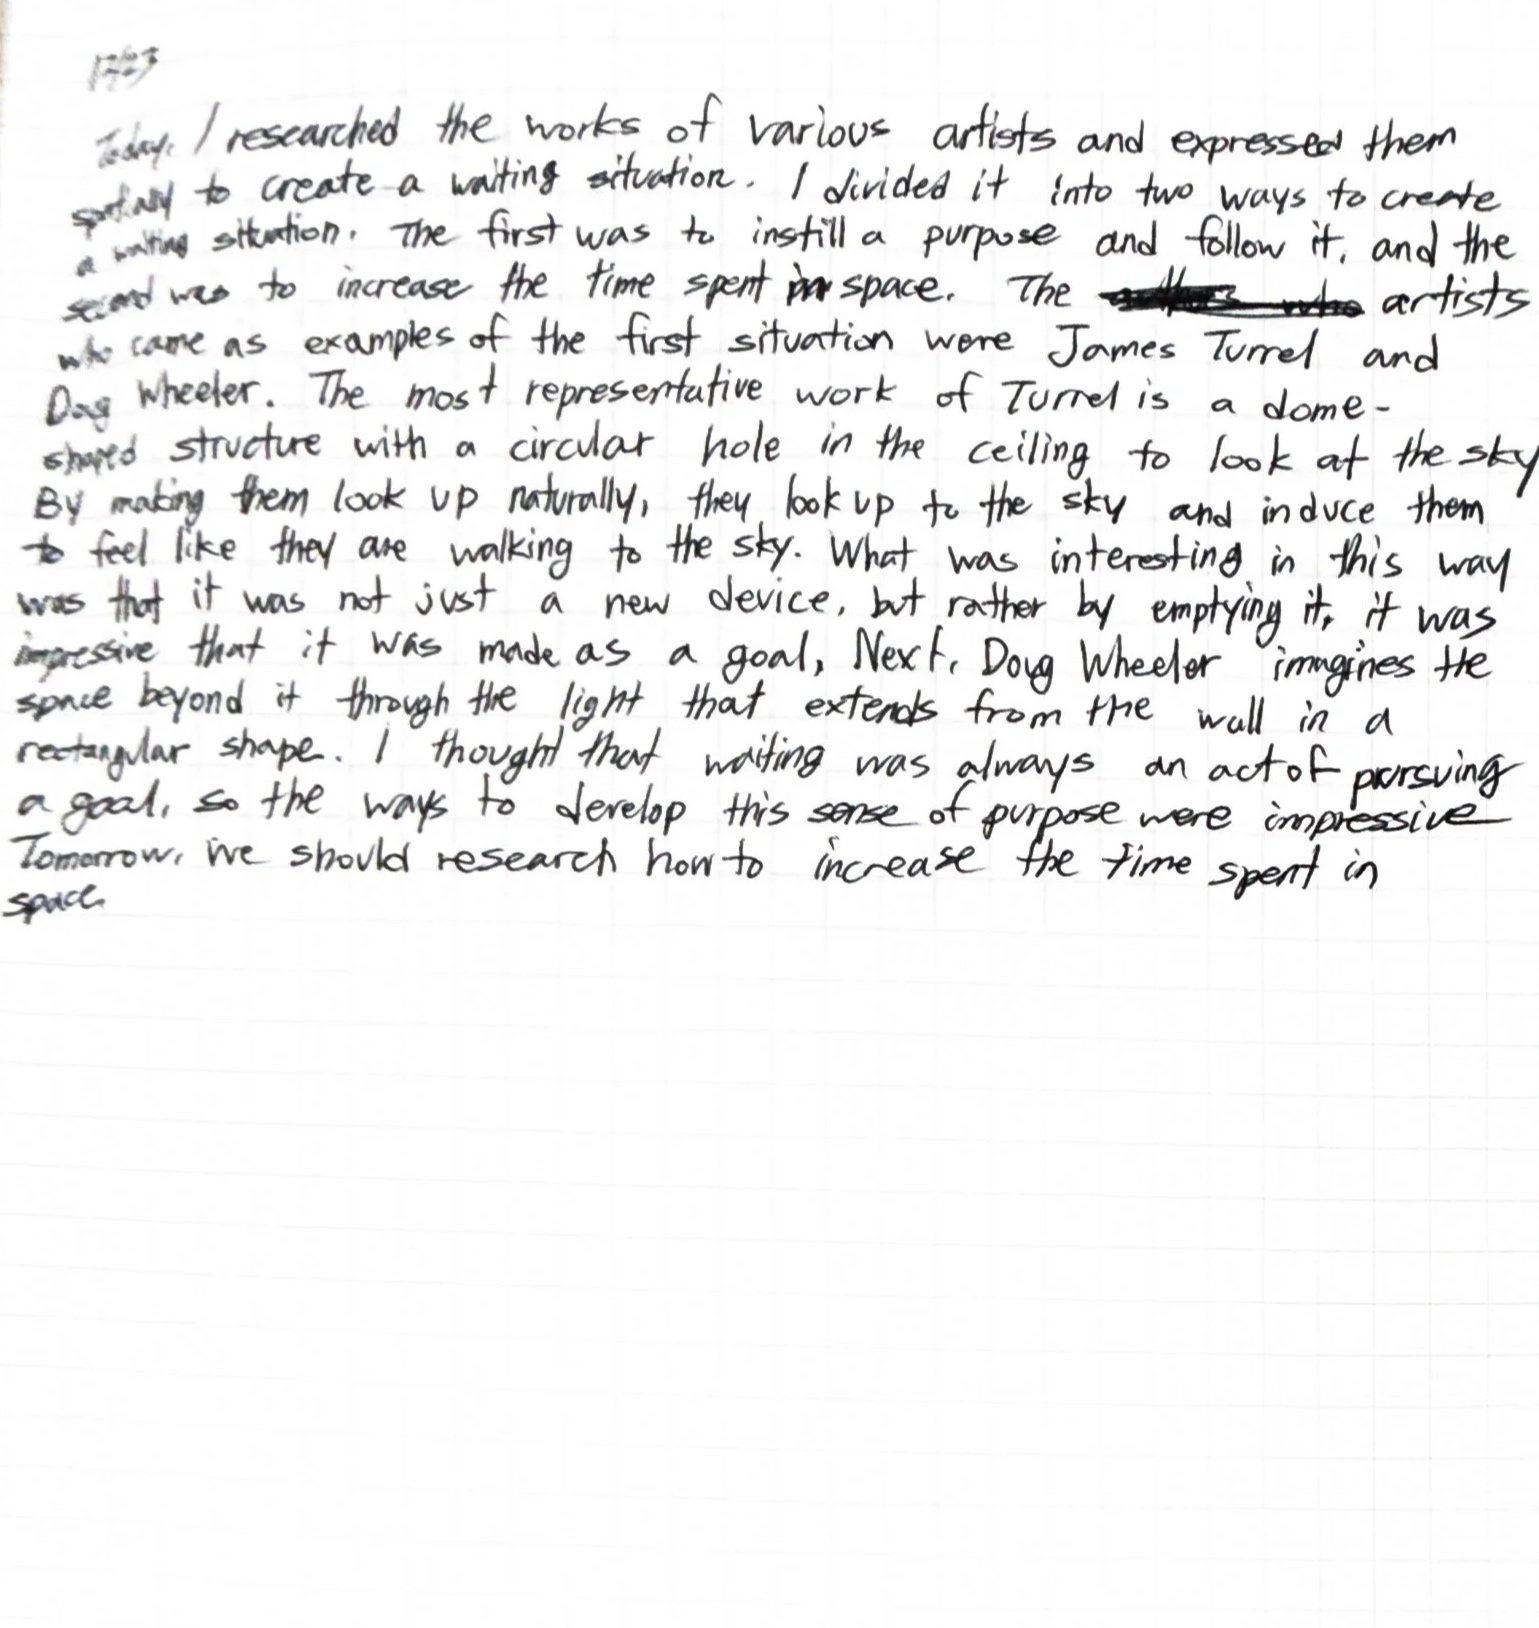 Today, I researched the works of various artists and expressed them
spatially to create a waiting situation. I divided it into two ways to create
a waiting situation. The first was to instill a purpose and follow it, and the
second was to increase the time spent in space. The artists
who came as examples of the first situation were James Turrel and
Doug Wheeler. The most representative work of Turrel is a dome-
shaped structure with a circular hole in the ceiling to look at the sky
By making them look up naturally, they look up to the sky and induce them
to feel like they are walking to the sky. What was interesting in this way
was that it was not just a new device, but rather by emptying it, it was
impressive that it was made as a goal, Next, Doug Wheeler imagines the
space beyond it through the light that extends from the wall in a
rectangular shape. I thought that waiting was always an act of pursuing
a goal, so the ways to develop this sense of purpose were impressive
Tomorrow, we should research how to increase the time spent in
space.